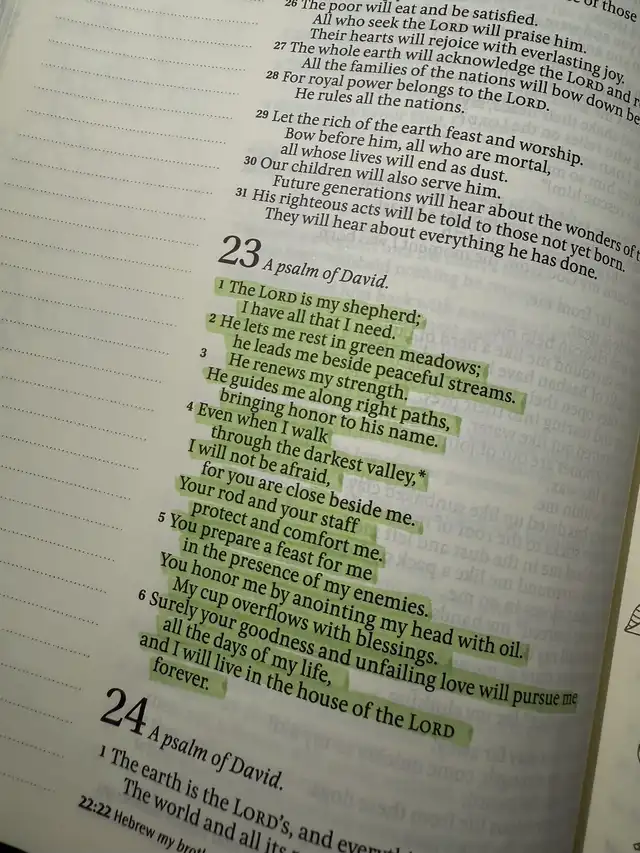 of those
26 The poor will eat and be satisfied.
All who seek the LORD will praise him.
Their hearts will rejoice with everlasting joy.
27 The whole earth will acknowledge the LORD and
All the families of the nations will bow down
28 For royal power belongs to the LORD.
He rules all the nations.
29 Let the rich of the earth feast and worship.
Bow before him, all who are mortal,
all whose lives will end as dust.
30 Our children will also serve him.
Future generations will hear about the wonders of
31 His righteous acts will be told to those not yet born.
They will hear about everything he has done.
23 A psalm of David.
1 The LORD is my shepherd;
I have all that I need.
2 He lets me rest in green meadows;
he leads me beside peaceful streams.
3 He renews my strength.
He guides me along right paths,
bringing honor to his name.
4 Even when I walk
through the darkest valley,*
I will not be afraid,
for you are close beside me.
Your rod and your staff
protect and comfort me.
5 You prepare a feast for me
in the presence of my enemies.
You honor me by anointing my head with oil.
My cup overflows with blessings.
6 Surely your goodness and unfailing love will pursue me
all the days of my life,
and I will live in the house of the LORD
forever.
24 A psalm of David.
1 The earth is the LORD'S, and
The world and all its
22:22 Hebrew my